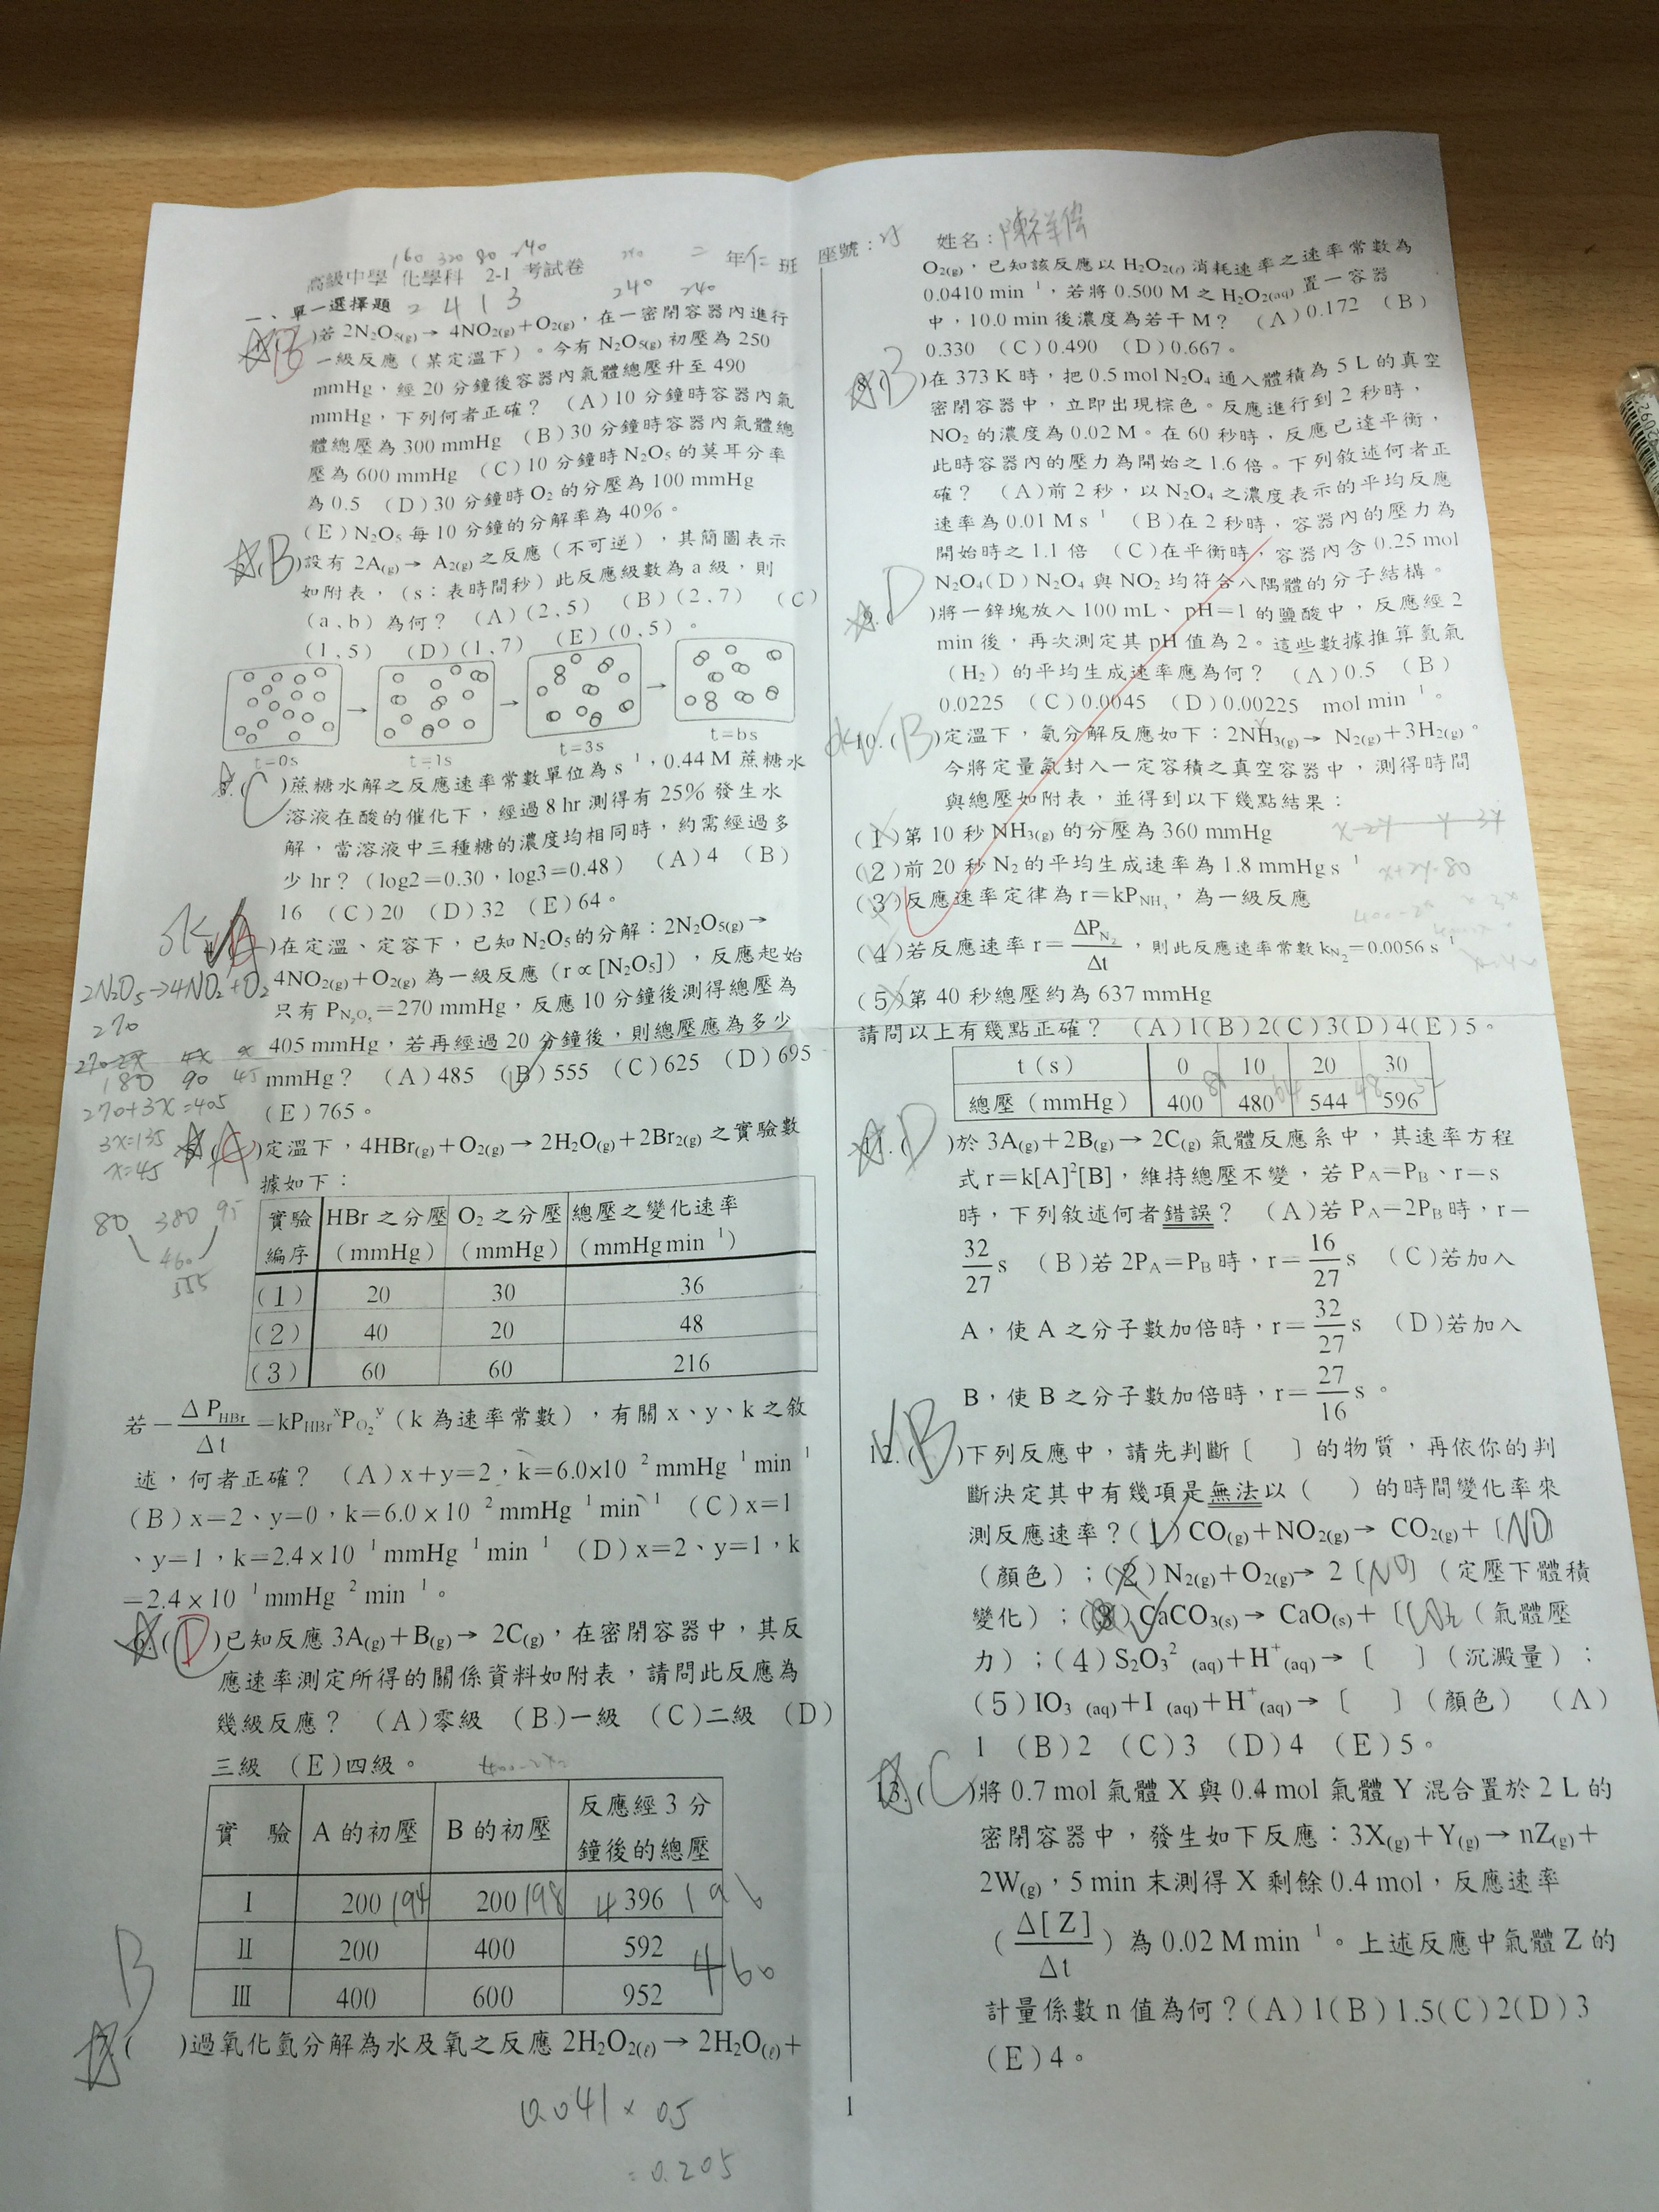 160 320 80 240
高級中學 化學科 2-1 考試卷 二 年仁班 座號： 姓名：陳
一、單一選擇題 2 4 1 3 240 240
1.( )若 2N₂O₅(g) → 4NO₂(g)+O₂(g)，在一密閉容器內進行
一級反應（某定溫下）。今有 N₂O₅(g) 初壓為 250
mmHg，經 20 分鐘後容器內氣體總壓升至 490
mmHg，下列何者正確？ (A)10 分鐘時容器內氣
體總壓為 300 mmHg (B)30 分鐘時容器內氣體總
壓為 600 mmHg (C)10 分鐘時 N₂O₅ 的莫耳分率
為 0.5 (D)30 分鐘時 O₂ 的分壓為 100 mmHg
(E)N₂O₅ 每 10 分鐘的分解率為 40%。
2.(B)設有 2A(g) → A₂(g) 之反應（不可逆），其簡圖表示
如附表，（s：表時間秒）此反應級數為 a 級，則
(a、b) 為何？ (A)(2、5) (B)(2、7) (C)
(1、5) (D)(1、7) (E)(0、5)。
t=0s t=1s t=3s t=bs
3.(C)蔗糖水解之反應速率常數單位為 s ¹，0.44 M 蔗糖水
溶液在酸的催化下，經過 8 hr 測得有 25% 發生水
解，當溶液中三種糖的濃度均相同時，約需經過多
少 hr？（log2=0.30，log3=0.48） (A)4 (B)
16 (C)20 (D)32 (E)64。
4.( )在定溫、定容下，已知 N₂O₅ 的分解：2N₂O₅(g) →
4NO₂(g)+O₂(g) 為一級反應（r∝[N₂O₅]），反應起始
只有 P_N₂O₅=270 mmHg，反應 10 分鐘後測得總壓為
405 mmHg，若再經過 20 分鐘後，則總壓應為多少
mmHg？ (A)485 (B)555 (C)625 (D)695
(E)765。
2N₂O₅→4NO₂+O₂
270
270-2x 4x x
180 90 45
270+3x=405
3x=135
x=45
80 380 95
460
555
5.( )定溫下，4HBr(g)+O₂(g) → 2H₂O(g)+2Br₂(g) 之實驗數
據如下：
實驗編序 HBr 之分壓（mmHg） O₂ 之分壓（mmHg） 總壓之變化速率（mmHg min ¹）
(1) 20 30 36
(2) 40 20 48
(3) 60 60 216
若－ΔP_HBr/Δt=kP_HBr^x P_O₂^y（k 為速率常數），有關 x、y、k 之敘
述，何者正確？ (A)x+y=2，k=6.0×10 ² mmHg ¹ min ¹
(B)x=2、y=0，k=6.0×10 ² mmHg ¹ min ¹ (C)x=1
、y=1，k=2.4×10 ¹ mmHg ¹ min ¹ (D)x=2、y=1，k
=2.4×10 ¹ mmHg ² min ¹。
6.(D)已知反應 3A(g)+B(g) → 2C(g)，在密閉容器中，其反
應速率測定所得的關係資料如附表，請問此反應為
幾級反應？ (A)零級 (B)一級 (C)二級 (D)
三級 (E)四級。
實 驗 A 的初壓 B 的初壓 反應經 3 分鐘後的總壓
I 200 194 200 198 4 396 196
II 200 400 592
III 400 600 952
460
B
7.( )過氧化氫分解為水及氧之反應 2H₂O₂(ℓ) → 2H₂O(ℓ)+
0.041×0.5
=0.205
O₂(g)，已知該反應以 H₂O₂(ℓ) 消耗速率之速率常數為
0.0410 min ¹，若將 0.500 M 之 H₂O₂(aq) 置一容器
中，10.0 min 後濃度為若干 M？ (A)0.172 (B)
0.330 (C)0.490 (D)0.667。
8.(B)在 373 K 時，把 0.5 mol N₂O₄ 通入體積為 5 L 的真空
密閉容器中，立即出現棕色。反應進行到 2 秒時，
NO₂ 的濃度為 0.02 M。在 60 秒時，反應已達平衡，
此時容器內的壓力為開始之 1.6 倍。下列敘述何者正
確？ (A)前 2 秒，以 N₂O₄ 之濃度表示的平均反應
速率為 0.01 M s ¹ (B)在 2 秒時，容器內的壓力為
開始時之 1.1 倍 (C)在平衡時，容器內含 0.25 mol
N₂O₄(D) N₂O₄ 與 NO₂ 均符合八隅體的分子結構。
9.(D)將一鋅塊放入 100 mL、pH=1 的鹽酸中，反應經 2
min 後，再次測定其 pH 值為 2。這些數據推算氫氣
（H₂）的平均生成速率應為何？ (A)0.5 (B)
0.0225 (C)0.0045 (D)0.00225 mol min ¹。
10.(B)定溫下，氨分解反應如下：2NH₃(g) → N₂(g)+3H₂(g)。
今將定量氨封入一定容積之真空容器中，測得時間
與總壓如附表，並得到以下幾點結果：
(1)第 10 秒 NH₃(g) 的分壓為 360 mmHg
(2)前 20 秒 N₂ 的平均生成速率為 1.8 mmHg s ¹
(3)反應速率定律為 r=kP_NH₃，為一級反應
(4)若反應速率 r=ΔP_N₂/Δt，則此反應速率常數 k_N₂=0.0056 s ¹
(5)第 40 秒總壓約為 637 mmHg
請問以上有幾點正確？ (A)1(B)2(C)3(D)4(E)5。
t（s） 0 10 20 30
總壓（mmHg） 400 480 544 596
11.(D)於 3A(g)+2B(g) → 2C(g) 氣體反應系中，其速率方程
式 r=k[A]²[B]，維持總壓不變，若 P_A=P_B、r=s
時，下列敘述何者錯誤？ (A)若 P_A=2P_B 時，r=
32/27 s (B)若 2P_A=P_B 時，r=16/27 s (C)若加入
A，使 A 之分子數加倍時，r=32/27 s (D)若加入
B，使 B 之分子數加倍時，r=27/16 s。
12.(B)下列反應中，請先判斷〔 〕的物質，再依你的判
斷決定其中有幾項是無法以（ ）的時間變化率來
測反應速率？(1)CO(g)+NO₂(g) → CO₂(g)+〔NO〕
（顏色）；(2)N₂(g)+O₂(g) → 2〔NO〕（定壓下體積
變化）；(3)CaCO₃(s) → CaO(s)+〔CO₂〕（氣體壓
力）；(4)S₂O₃² (aq)+H⁺(aq) → 〔 〕（沉澱量）；
(5)IO₃ (aq)+I (aq)+H⁺(aq) → 〔 〕（顏色） (A)
1 (B)2 (C)3 (D)4 (E)5。
13.(C)將 0.7 mol 氣體 X 與 0.4 mol 氣體 Y 混合置於 2 L 的
密閉容器中，發生如下反應：3X(g)+Y(g) → nZ(g)+
2W(g)，5 min 末測得 X 剩餘 0.4 mol，反應速率
（Δ[Z]/Δt）為 0.02 M min ¹。上述反應中氣體 Z 的
計量係數 n 值為何？(A)1(B)1.5(C)2(D)3
(E)4。
1